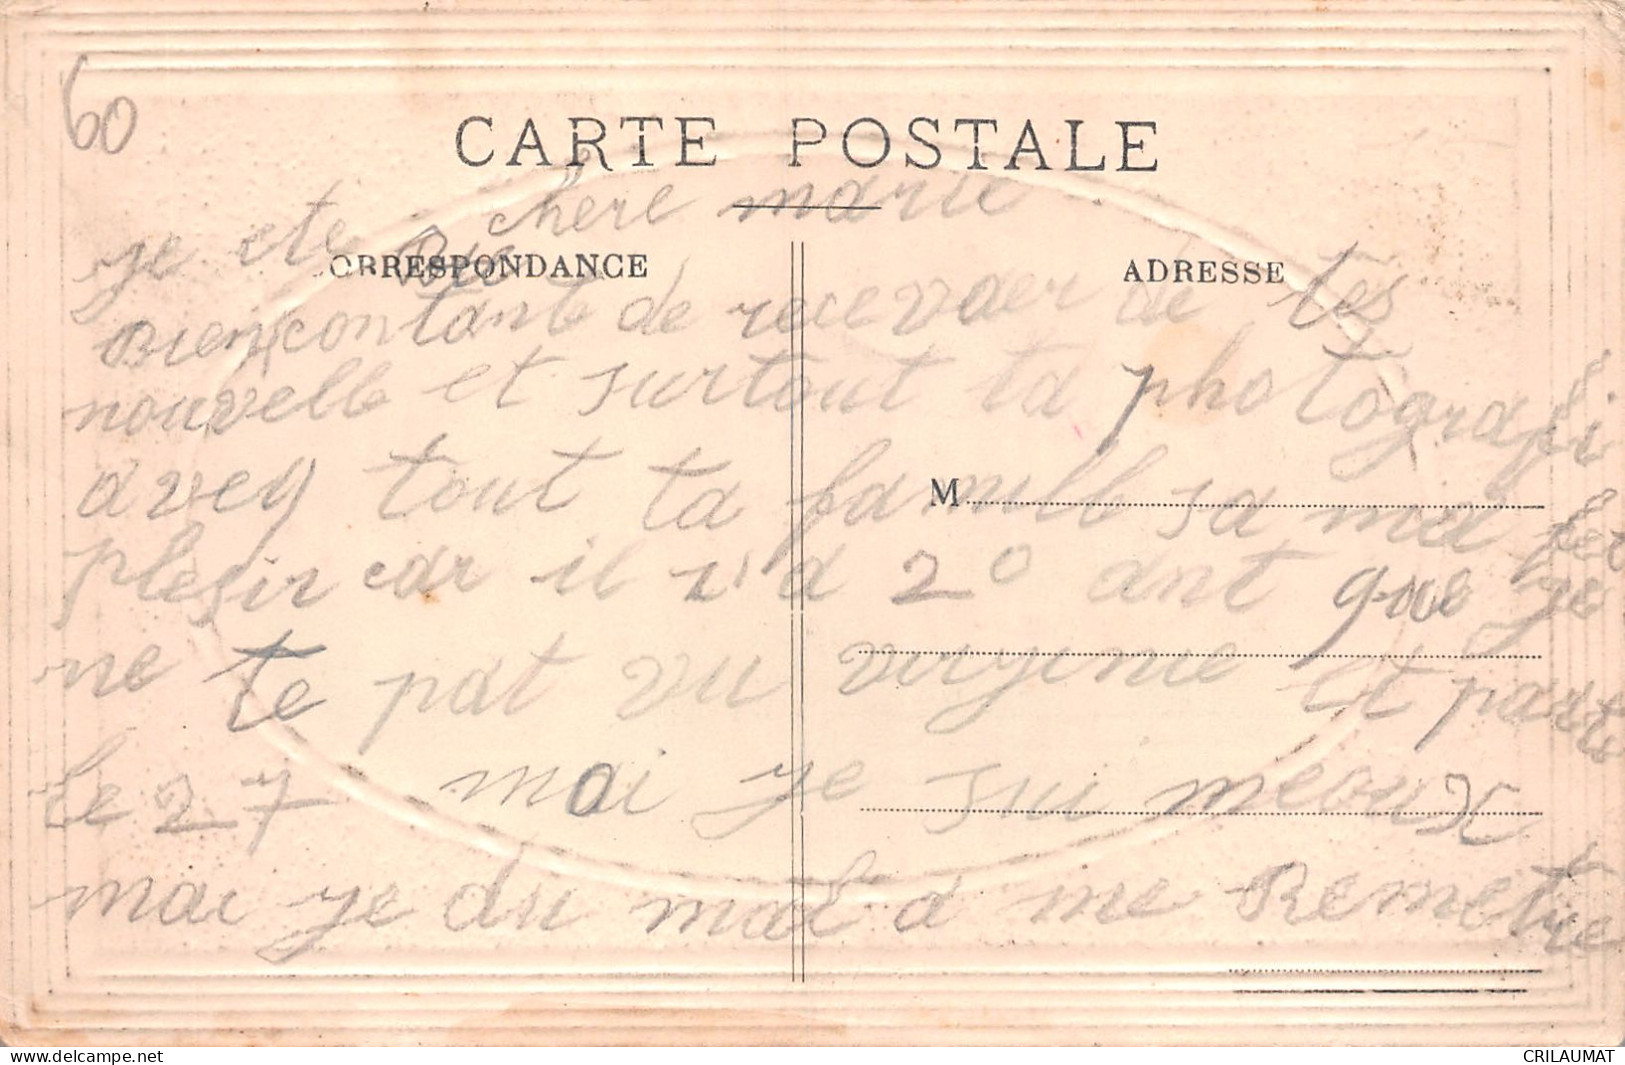 60
CARTE POSTALE
chere marie
CORRESPONDANCE
ADRESSE
je ete
bien contant de recevoer de tes
nouvelle et surtout ta photografi
aveq tout ta famille sa met fet
plesir car il i a 20 ant que je
M
ne te pat vu virjenie et parti
le 27 moi je sui meoux
mai je du mal a me Remetre
www.delcampe.net
CRILAUMAT